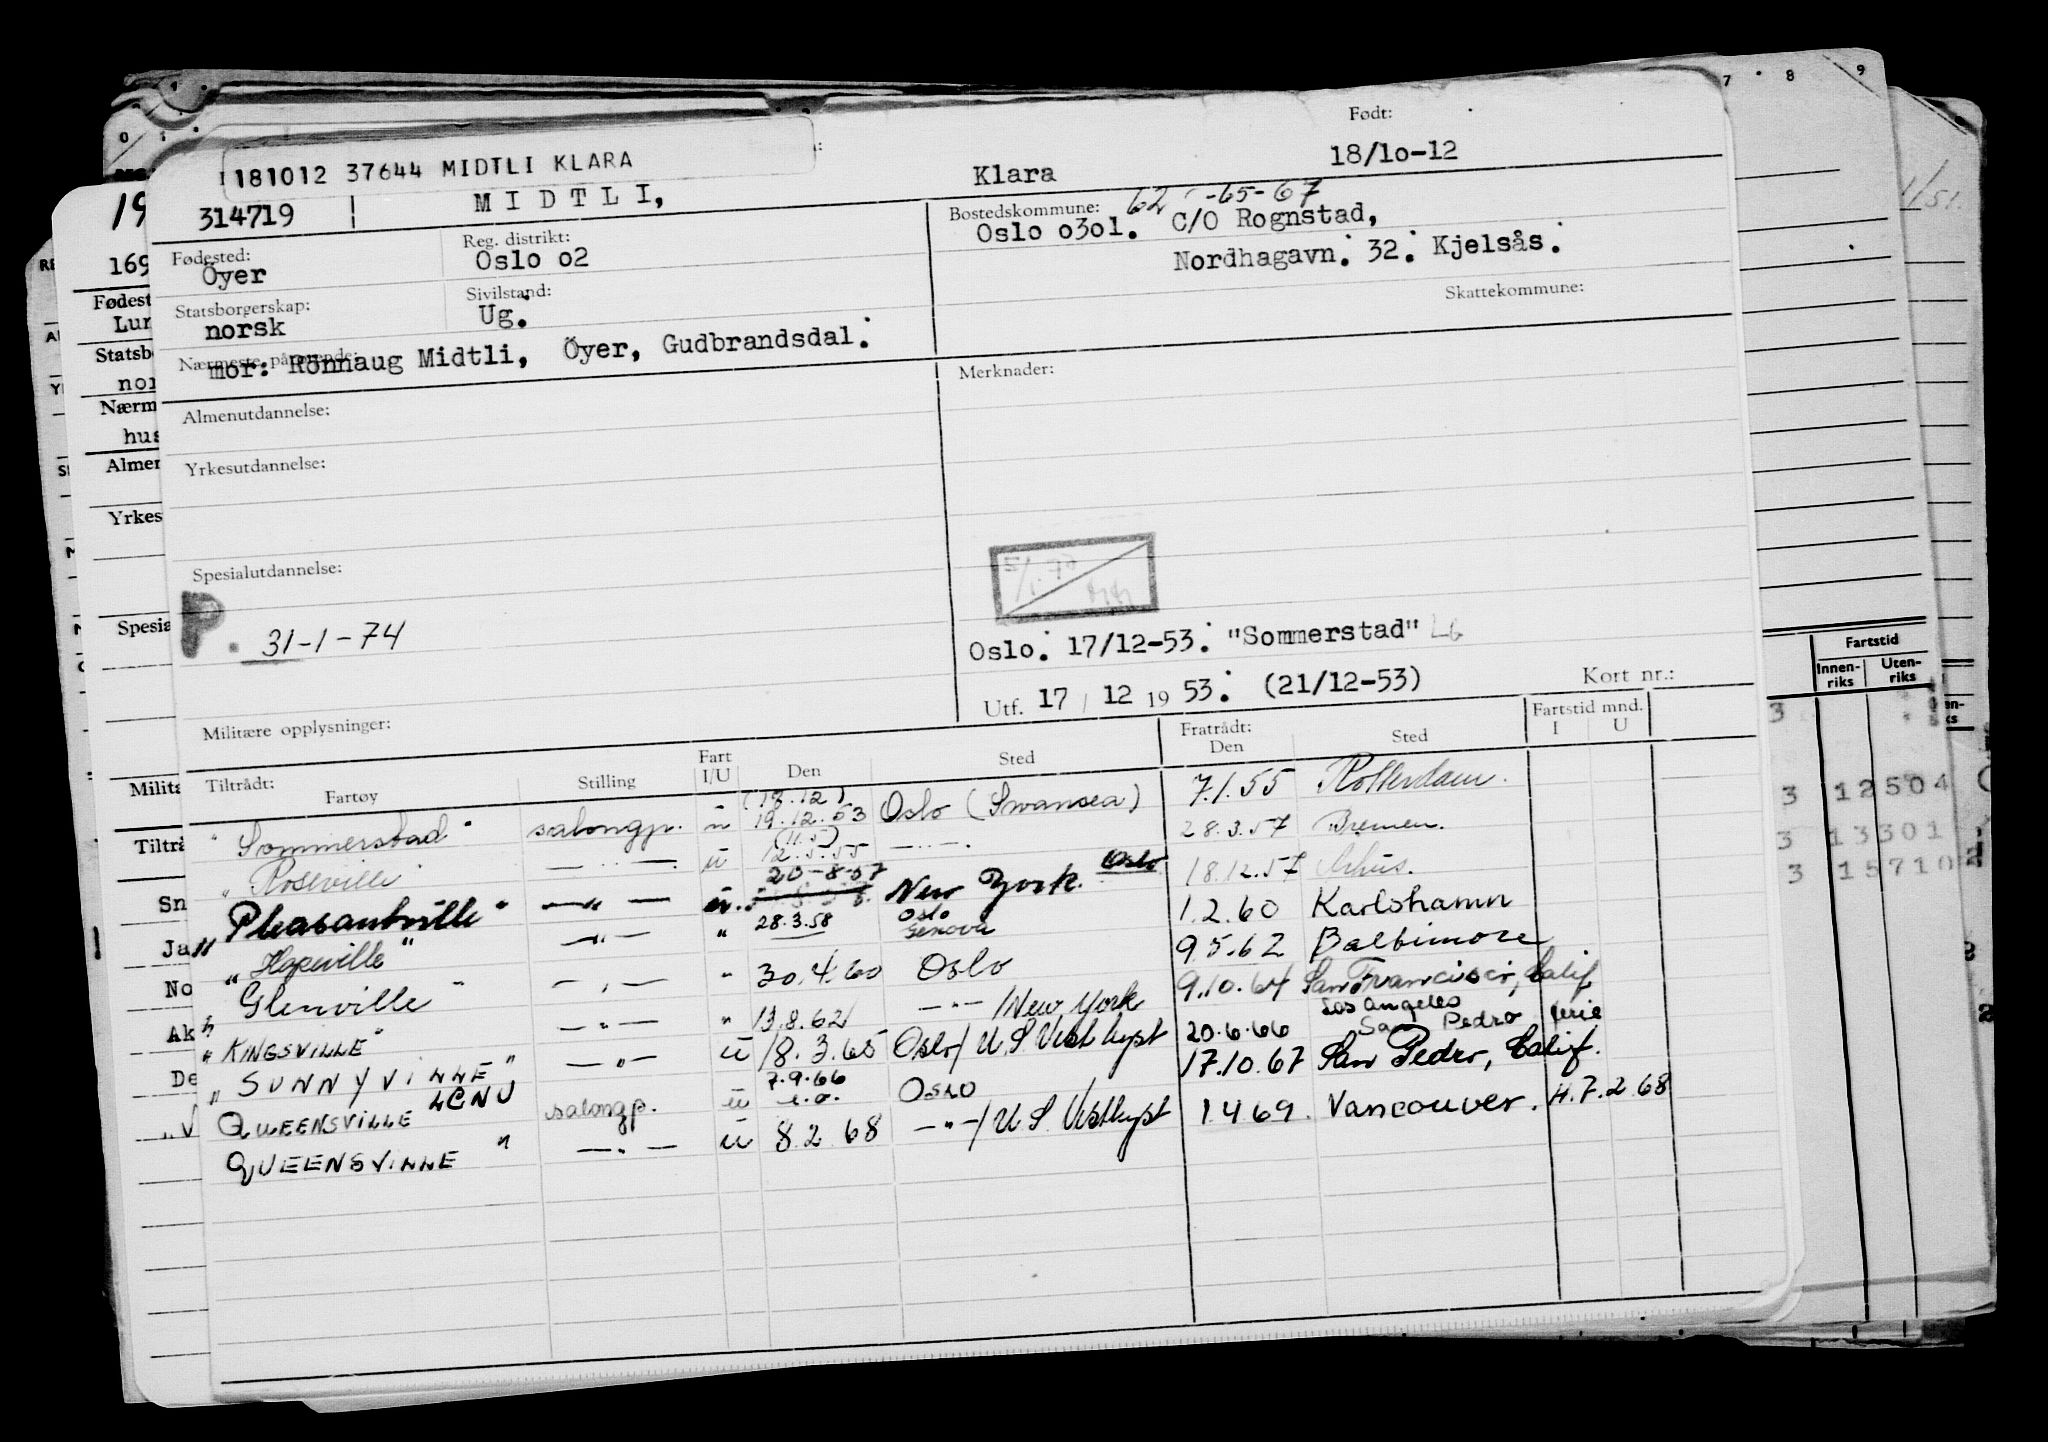 7 8 9
0 1
Født:
181012 37644 MIDTLI KLARA
Klara 18/10-12
19
314719 MIDTLI,
Bostedskommune: 62 -65-67
Oslo 0301. C/O Rognstad,
Nordhagavn. 32. Kjelsås.
Skattekommune:
169
Fødested: Reg. distrikt:
Öyer Oslo 02
Statsborgerskap: Sivilstand:
norsk Ug.
Nærmeste pårørende:
mor: Rönnaug Midtli, Öyer, Gudbrandsdal.
Merknader:
Almenutdannelse:
Yrkesutdannelse:
Spesialutdannelse:
P. 31-1-74
Oslo. 17/12-53. "Sommerstad" Lb
Utf. 17 / 12 19 53. (21/12-53)
Kort nr.:
Militære opplysninger:
Tiltrådt: Fartøy Stilling Fart I/U Den Sted Fratrådt: Den Sted Fartstid mnd. I U
"Sommerstad" salongp. u (18.12) 19.12.53 Oslo (Swansea) 7.1.55 Rotterdam.
"Roseville — " — . u (11.5) 12.5.55 — " — . 28.3.57 Bremen.
"Pleasantville" — " — u. 20-8-57 New York. Oslo 18.12.57 Århus.
"Hopeville" — " — " 28.3.58 Oslo Genova 1.2.60 Karlshamn
"Glenville" — " — " 30.4.60 Oslo 9.5.62 Baltimore
"KINGSVILLE" — " — " 13.8.62 — " — /New York 9.10.64 San Francisco, Calif.
"SUNNYVILLE" — " — u 18.3.65 Oslo/U.S. Vestkyst 20.6.66 Los Angeles San Pedro ferie
QUEENSVILLE LCNU salongp. u 7.9.66 e.o. OSLO 17.10.67 San Pedro, Calif.
QUEENSVILLE " — " — u 8.2.68 — " — /U.S. Vestkyst 1.4.69. Vancouver. H.7.2.68
Fødest
Lun
Statsb
nor
Nærm
hus
Almen
Yrkes
Spesia
Milita
Tiltrå
Sn
Ja
No
Ak
De
Fartstid
Innen-riks Uten-riks
3
3 12504
3 13301
3 15710